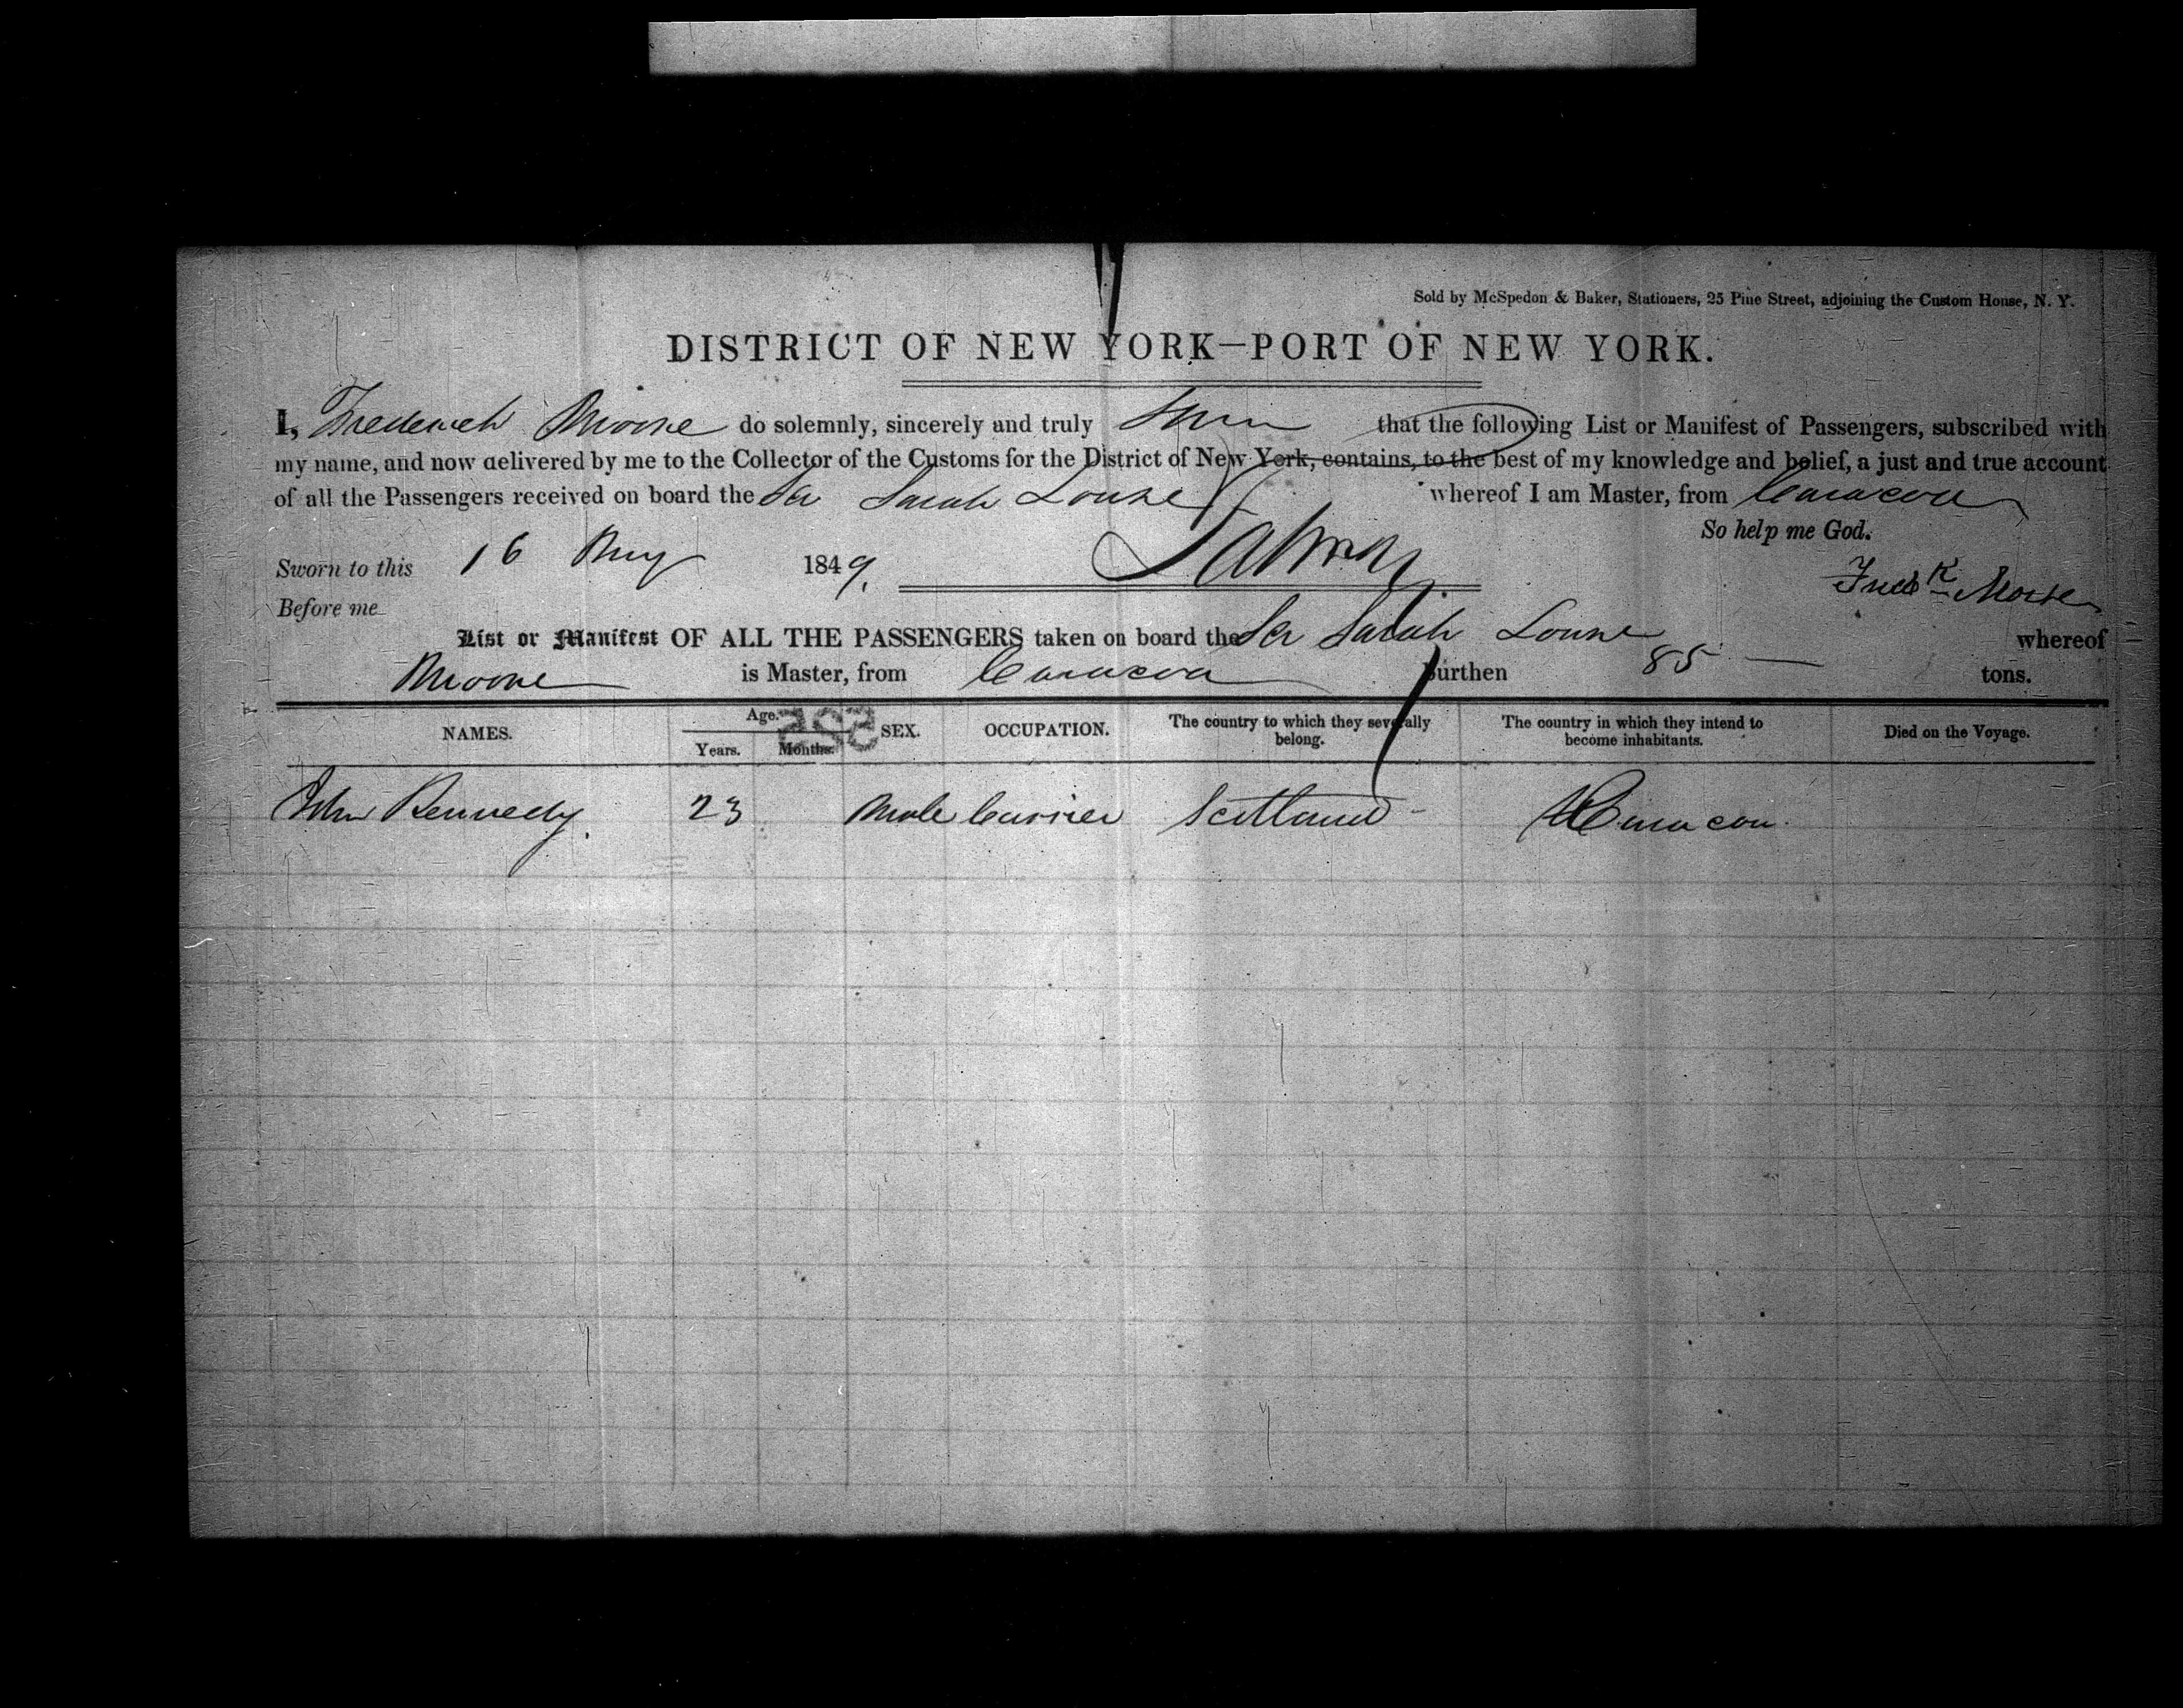 Sold by McSpedon & Baker, Stationers, 25 Pine Street, adjoining the Custom House, N. Y.
DISTRICT OF NEW YORK—PORT OF NEW YORK.
I, Frederick do solemnly, sincerely and truly that the following List or Manifest of Passengers, subscribed with
my name, and now delivered by me to the Collector of the Customs for the District of New York, contains, to the best of my knowledge and belief, a just and true account
of all the Passengers received on board the Scr Sarah Louise whereof I am Master, from Curacoa
So help me God.
Sworn to this 16 1849.
Fredk Morse
Before me
List or Manifest OF ALL THE PASSENGERS taken on board the Scr Sarah Louise whereof
is Master, from Curacoa Burthen 85 tons.
NAMES. Age. Years. Months. SEX. OCCUPATION. The country to which they severally belong. The country in which they intend to become inhabitants. Died on the Voyage.
525
John Kennedy. 23 Male Currier Scotland Curacoa.